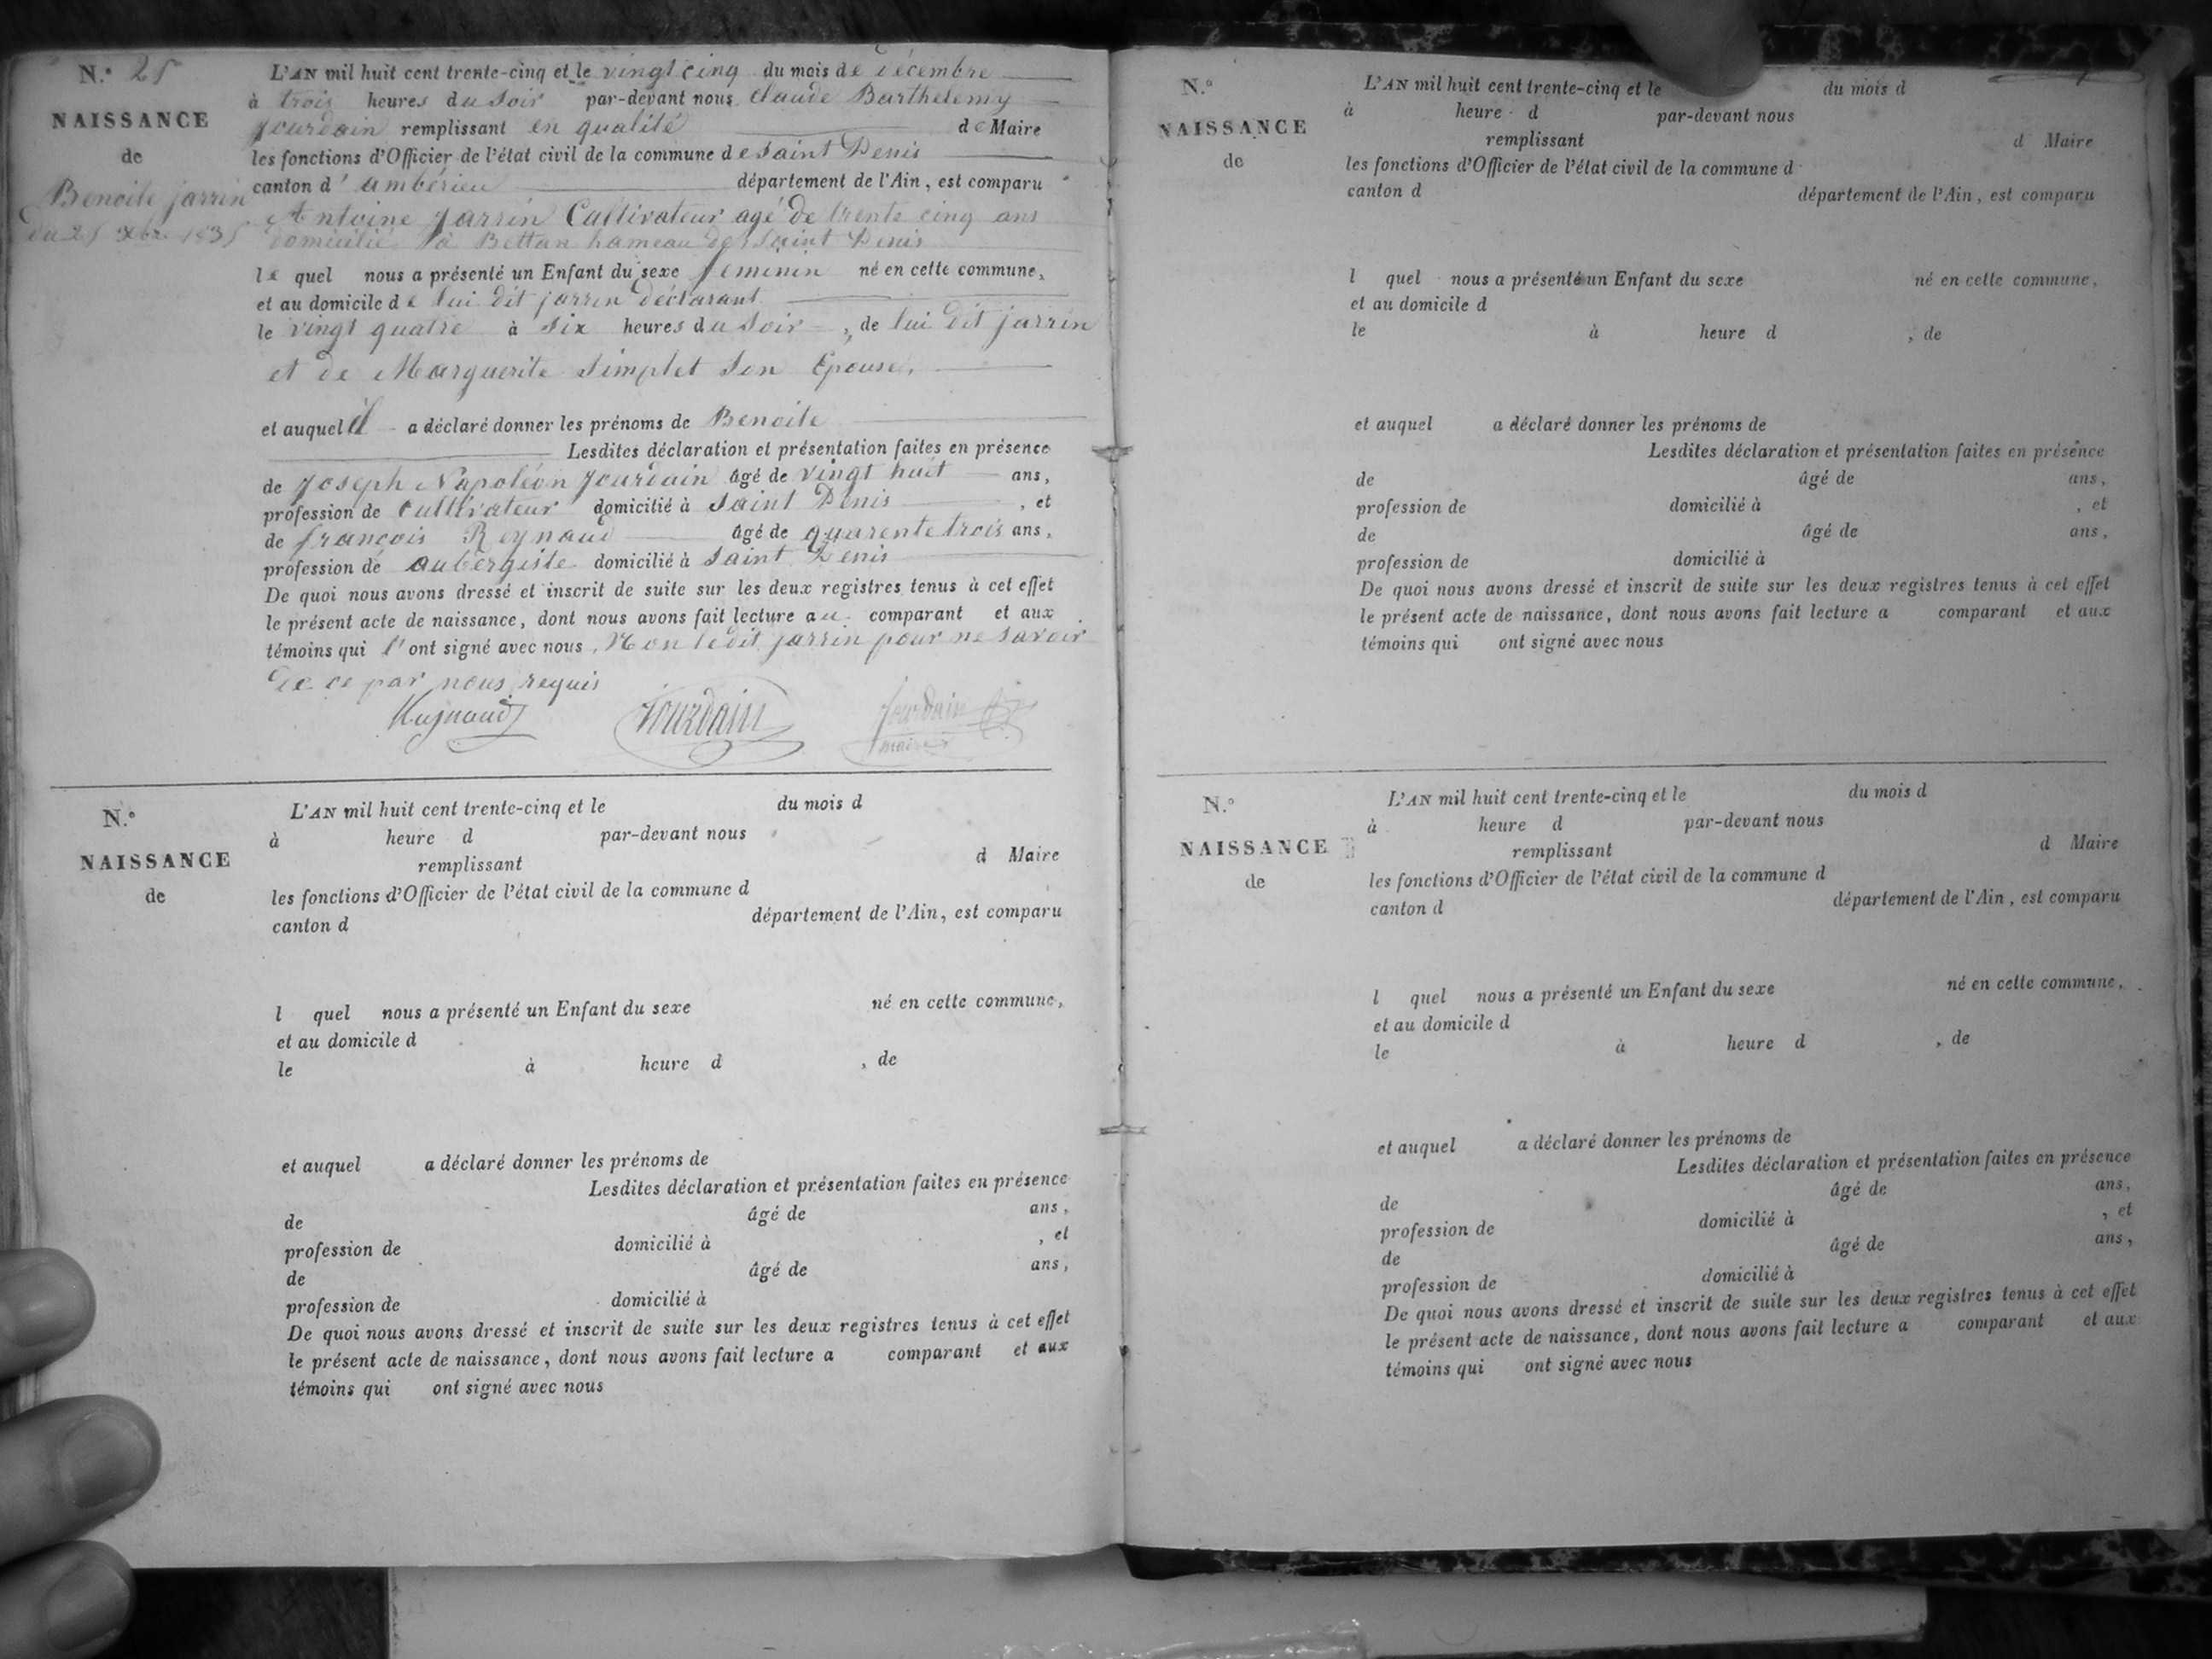 N.° 25
NAISSANCE
de
Benoite jarrin
du 25 xbre 1835
L'AN mil huit cent trente-cinq et le vingt cinq du mois de décembre
à trois heures du soir par-devant nous Claude Barthelemy
Jourdain remplissant en qualité de Maire
les fonctions d'Officier de l'état civil de la commune de Saint Denis
canton d'ambérieu département de l'Ain, est comparu
Antoine Jarrin Cultivateur agé de trente cinq ans
domicilié à Bettan hameau de Saint Denis
le quel nous a présenté un Enfant du sexe feminin né en cette commune,
et au domicile de lui dit jarrin déclarant
le vingt quatre à six heures du soir, de lui dit jarrin
et de Marguerite Simplet Son Epouse,
et auquel il a déclaré donner les prénoms de Benoite
Lesdites déclaration et présentation faites en présence
de Joseph Napoléon Jourdain âgé de vingt huit ans,
profession de Cultivateur domicilié à Saint Denis, et
de françois Reynaud âgé de quarente trois ans,
profession de aubergiste domicilié à Saint Denis
De quoi nous avons dressé et inscrit de suite sur les deux registres tenus à cet effet
le présent acte de naissance, dont nous avons fait lecture au comparant et aux
témoins qui l'ont signé avec nous, Non le dit jarrin pour ne savoir
de ce par nous requis
Raynaud Jourdain Jourdain
maire
N.°
NAISSANCE
de
L'AN mil huit cent trente-cinq et le du mois d
à heure d par-devant nous
remplissant d Maire
les fonctions d'Officier de l'état civil de la commune d
canton d département de l'Ain, est comparu
l quel nous a présenté un Enfant du sexe né en cette commune,
et au domicile d
le à heure d , de
et auquel a déclaré donner les prénoms de
Lesdites déclaration et présentation faites en présence
de âgé de ans,
profession de domicilié à , et
de âgé de ans,
profession de domicilié à
De quoi nous avons dressé et inscrit de suite sur les deux registres tenus à cet effet
le présent acte de naissance, dont nous avons fait lecture a comparant et aux
témoins qui ont signé avec nous
N.°
NAISSANCE
de
L'AN mil huit cent trente-cinq et le du mois d
à heure d par-devant nous
remplissant d Maire
les fonctions d'Officier de l'état civil de la commune d
canton d département de l'Ain, est comparu
l quel nous a présenté un Enfant du sexe né en cette commune,
et au domicile d
le à heure d , de
et auquel a déclaré donner les prénoms de
Lesdites déclaration et présentation faites en présence
de âgé de ans,
profession de domicilié à , et
de âgé de ans,
profession de domicilié à
De quoi nous avons dressé et inscrit de suite sur les deux registres tenus à cet effet
le présent acte de naissance, dont nous avons fait lecture a comparant et aux
témoins qui ont signé avec nous
N.°
NAISSANCE
de
L'AN mil huit cent trente-cinq et le du mois d
à heure d par-devant nous
remplissant d Maire
les fonctions d'Officier de l'état civil de la commune d
canton d département de l'Ain, est comparu
l quel nous a présenté un Enfant du sexe né en cette commune,
et au domicile d
le à heure d , de
et auquel a déclaré donner les prénoms de
Lesdites déclaration et présentation faites en présence
de âgé de ans,
profession de domicilié à , et
de âgé de ans,
profession de domicilié à
De quoi nous avons dressé et inscrit de suite sur les deux registres tenus à cet effet
le présent acte de naissance, dont nous avons fait lecture a comparant et aux
témoins qui ont signé avec nous